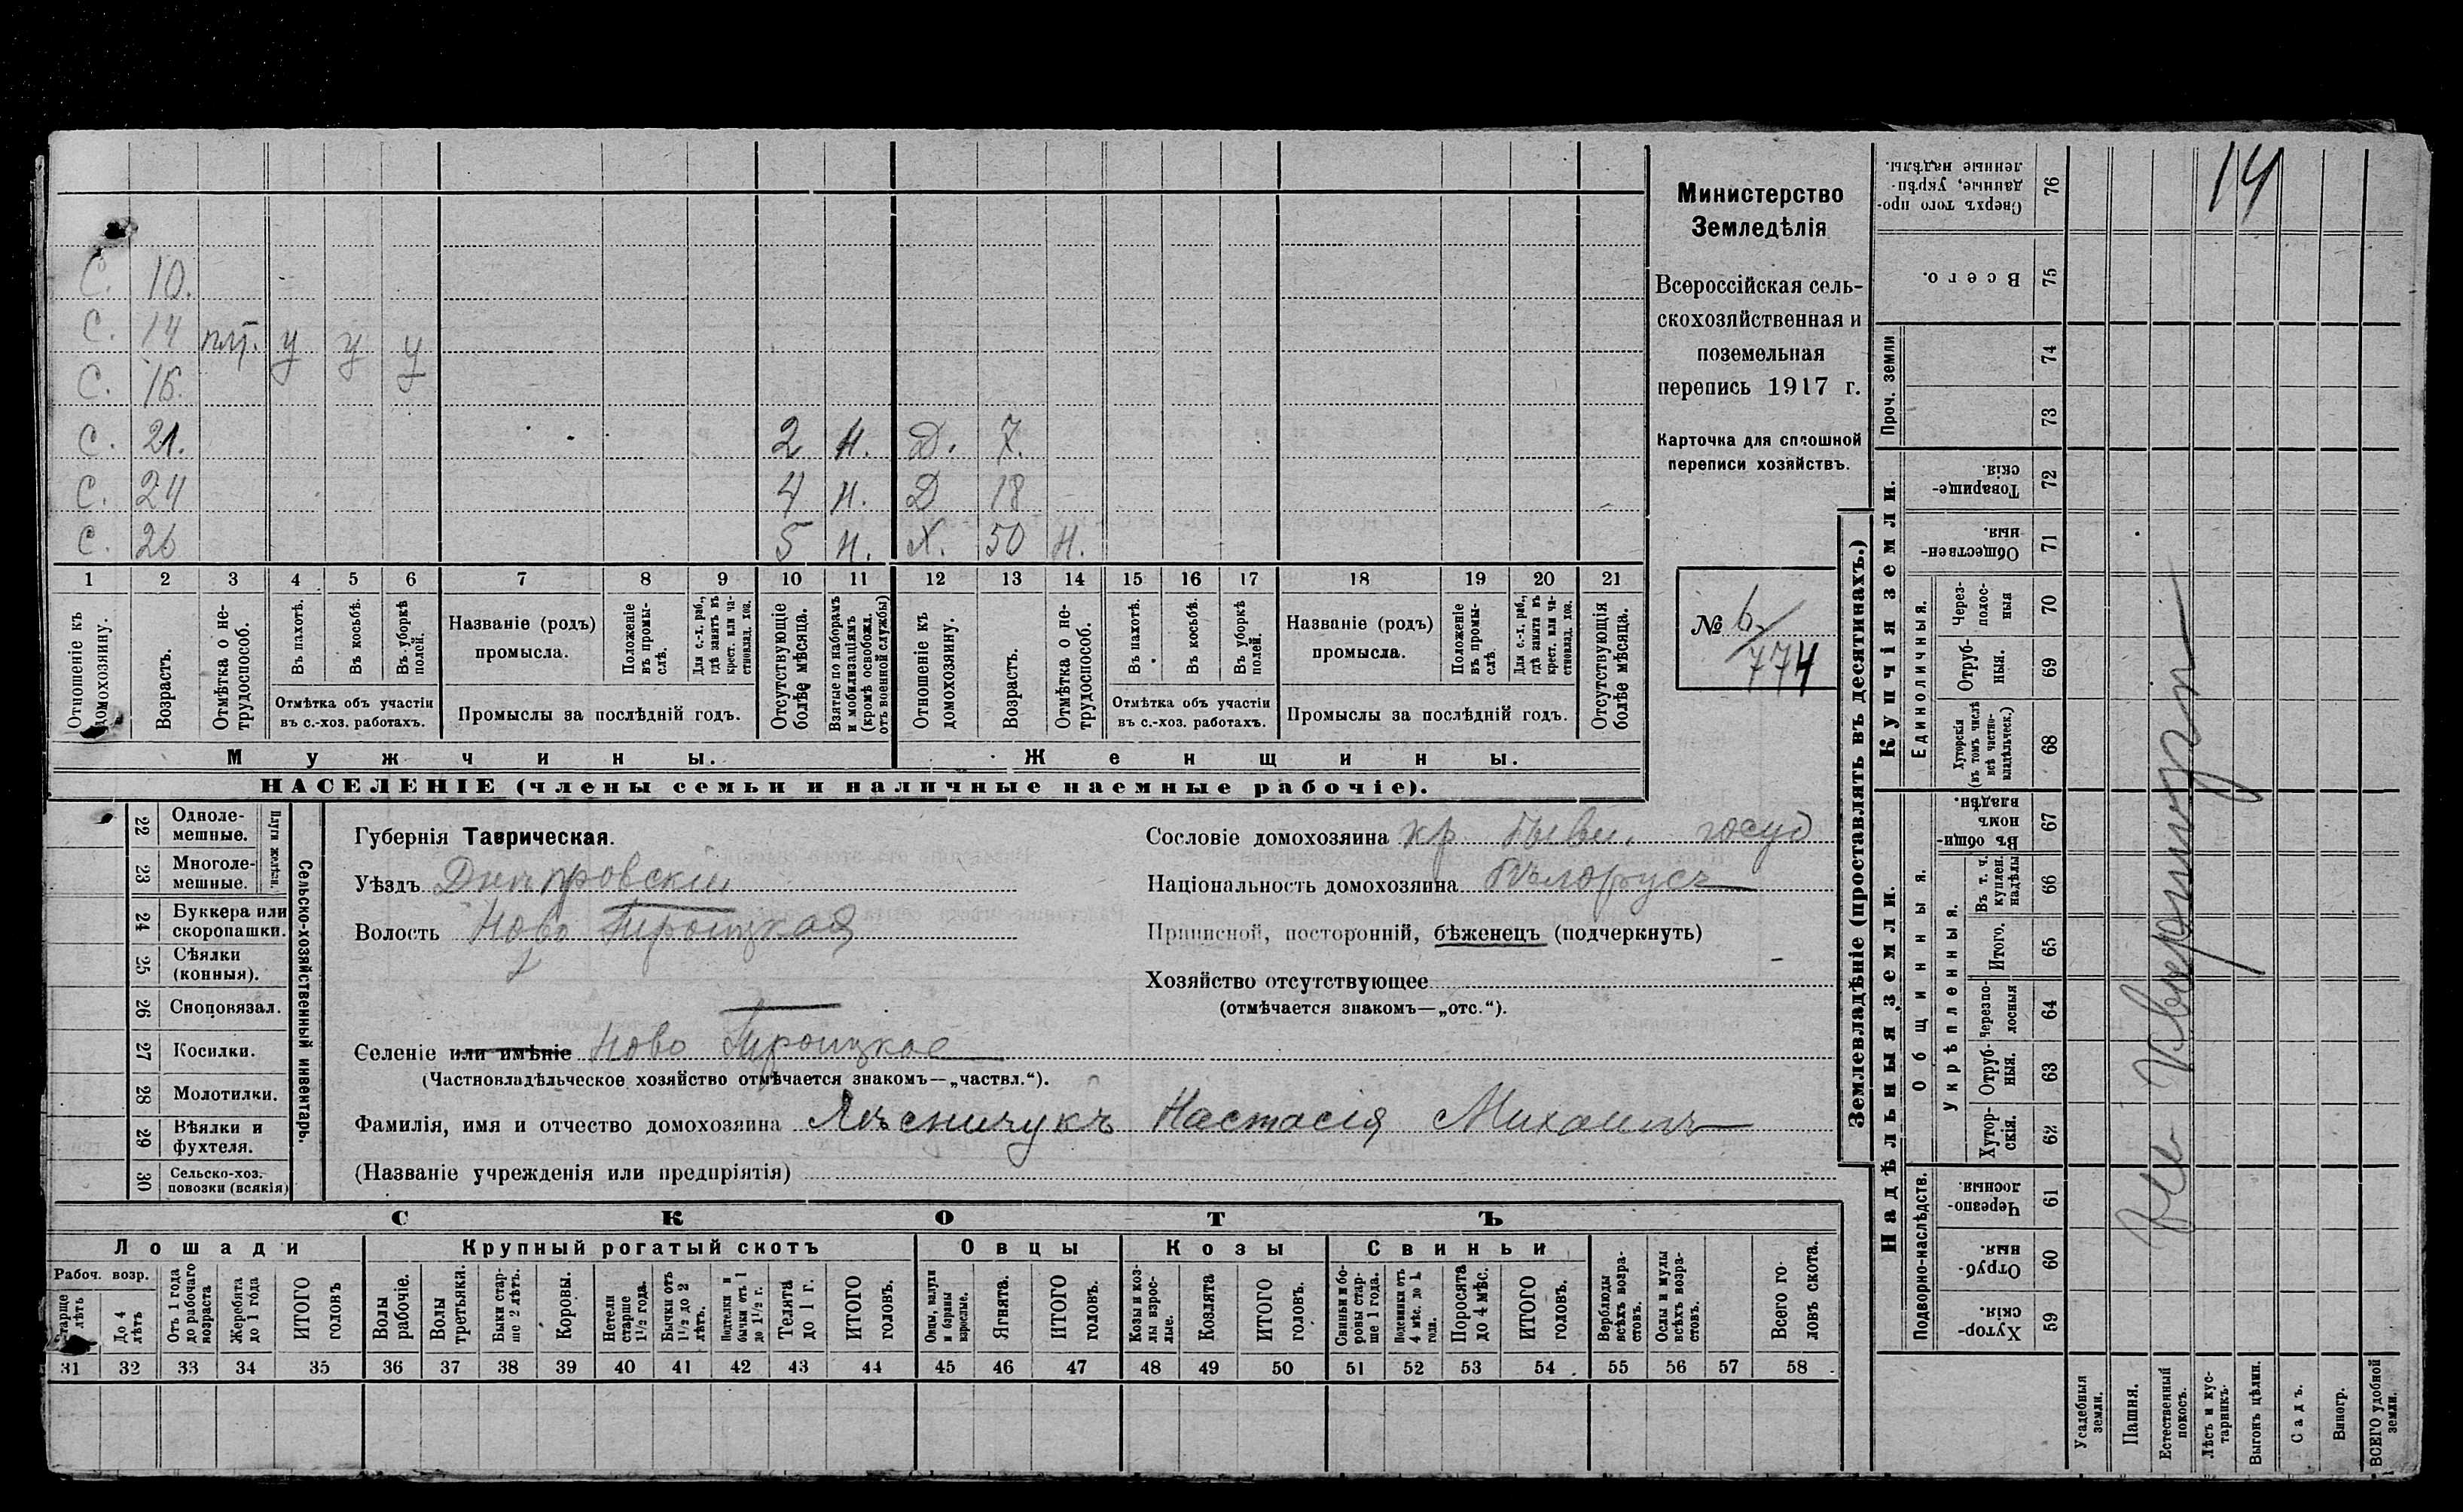 С. 10.
С. 14 у у у
С. 16.
С. 21. 2 н. Д. 7.
С. 24 4 н. Д 18
С. 26 5 н. Х. 50 н.
1 2 3 4 5 6 7 8 9 10 11 12 13 14 15 16 17 18 19 20 21
Отношеніе къ домохозяину.
Возрастъ.
Отмѣтка о не-трудоспособ.
Въ пахотѣ.
Въ косьбѣ.
Въ уборкѣ полей.
Отмѣтка объ участіи
въ с.-хоз. работахъ.
Названіе (родъ)
промысла.
Положеніе въ промы-слѣ.
Для с.-х. раб., гдѣ занятъ въ крест. или ча-стновлад. хоз.
Промыслы за послѣдній годъ.
Отсутствующіе болѣе мѣсяца.
Взятые по наборамъ и мобилизаціямъ (кромѣ освобожд. отъ военной службы)
Отношеніе къ домохозяину.
Возрастъ.
Отмѣтка о не-трудоспособ.
Въ пахотѣ.
Въ косьбѣ.
Въ уборкѣ полей.
Отмѣтка объ участіи
въ с.-хоз. работахъ.
Названіе (родъ)
промысла.
Положеніе въ промы-слѣ.
Для с.-х. раб., гдѣ занята въ крест. или ча-стновлад. хоз.
Промыслы за послѣдній годъ.
Отсутствующія болѣе мѣсяца.
Мужчины.
Женщины.
НАСЕЛЕНІЕ (члены семьи и наличные наемные рабочіе).
Министерство
Земледѣлія
Всероссійская сель-
скохозяйственная и
поземельная
перепись 1917 г.
Карточка для сплошной
переписи хозяйствъ.
№ 6/774
22 Одноле-мешные.
23 Многоле-мешные.
Плуги желѣзн.
24 Буккера или скоропашки.
25 Сѣялки (конныя).
26 Сноповязал.
27 Косилки.
28 Молотилки.
29 Вѣялки и фухтеля.
30 Сельско-хоз. повозки (всякія)
Сельско-хозяйственный инвентарь.
Губернія Таврическая.
Уѣздъ Днѣпровскій
Волость Ново Троицкая
Селеніе или имѣніе Ново Троицкое
(Частновладѣльческое хозяйство отмѣчается знакомъ—„частвл.“).
Фамилія, имя и отчество домохозяина Лѣсничукъ Настасія Михаилъ
(Названіе учрежденія или предпріятія)
Сословіе домохозяина кр. бывш. госуд
Національность домохозяина Бѣлорусъ
Приписной, посторонній, бѣженецъ (подчеркнуть)
Хозяйство отсутствующее
(отмѣчается знакомъ—„отс.“).
СКОТЪ
Лошади
Крупный рогатый скотъ
Овцы
Козы
Свиньи
Рабоч. возр.
Старше лѣтъ
До 4 лѣтъ
Отъ 1 года до рабочаго возраста
Жеребята до 1 года
ИТОГО головъ
Волы рабочіе.
Волы третьяки.
Быки стар-ше 2 лѣтъ.
Коровы.
Нетели старше 1½ года.
Бычки отъ 1½ до 2 лѣтъ.
Подтелки и бычки отъ 1 до 1½ г.
Телята до 1 г.
ИТОГО головъ.
Овцы, валухи и бараны взрослые.
Ягнята.
ИТОГО головъ.
Козы и коз-лы взрос-лые.
Козлята
ИТОГО головъ.
Свиньи и бо-ровы стар-ше 1 года.
Подсвинки отъ 4 мѣс. до 1 года.
Поросята до 4 мѣс.
ИТОГО головъ.
Верблюды всѣхъ возра-стовъ.
Ослы и мулы всѣхъ возра-стовъ.
Всего го-ловъ скота.
31 32 33 34 35 36 37 38 39 40 41 42 43 44 45 46 47 48 49 50 51 52 53 54 55 56 57 58
Землевладѣніе (проставлять въ десятинахъ.)
14
Сверхъ того про-данные, укрѣп-ленные надѣлы. 76
Всего. 75
Проч. земли 74
73
Купчія земли.
Товарище-скія. 72
Обществен-ныя 71
Единоличныя.
Через-полос-ныя 70
Отруб-ныя. 69
Хуторскія (въ томъ числѣ всѣ частно-владѣльческ.) 68
Надѣльныя земли.
Общинныя.
Въ общин-номъ владѣн. 67
Укрѣпленныя.
Въ т. ч. куплен. надѣлы 66
Итого. 65
Черезпо-лосныя 64
Отруб-ныя. 63
Хутор-скія. 62
Подворно-наслѣдств.
Черезпо-лосныя. 61
Отруб-ныя. 60
Хутор-скія. 59
Усадебныя земли.
Пашня.
Естественный покосъ.
Лѣсъ и кус-тарникъ.
Выгонъ цѣлин.
Садъ.
Виногр.
ВСЕГО удобной земли.